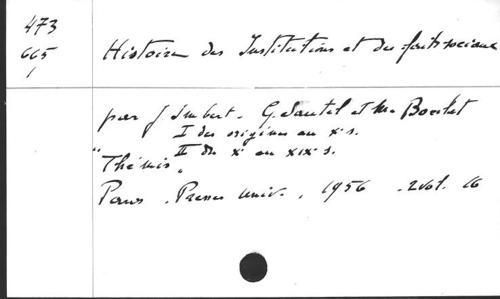 473
665
1
Histoire des Institutions et des faits sociaux
par J Imbert. G. Sautel et M. Boulet
I des origines au Xe s.
II du Xe au XIXe s.
"Thémis"
Paris. Presses Univ., 1956 . 2 vol. 16